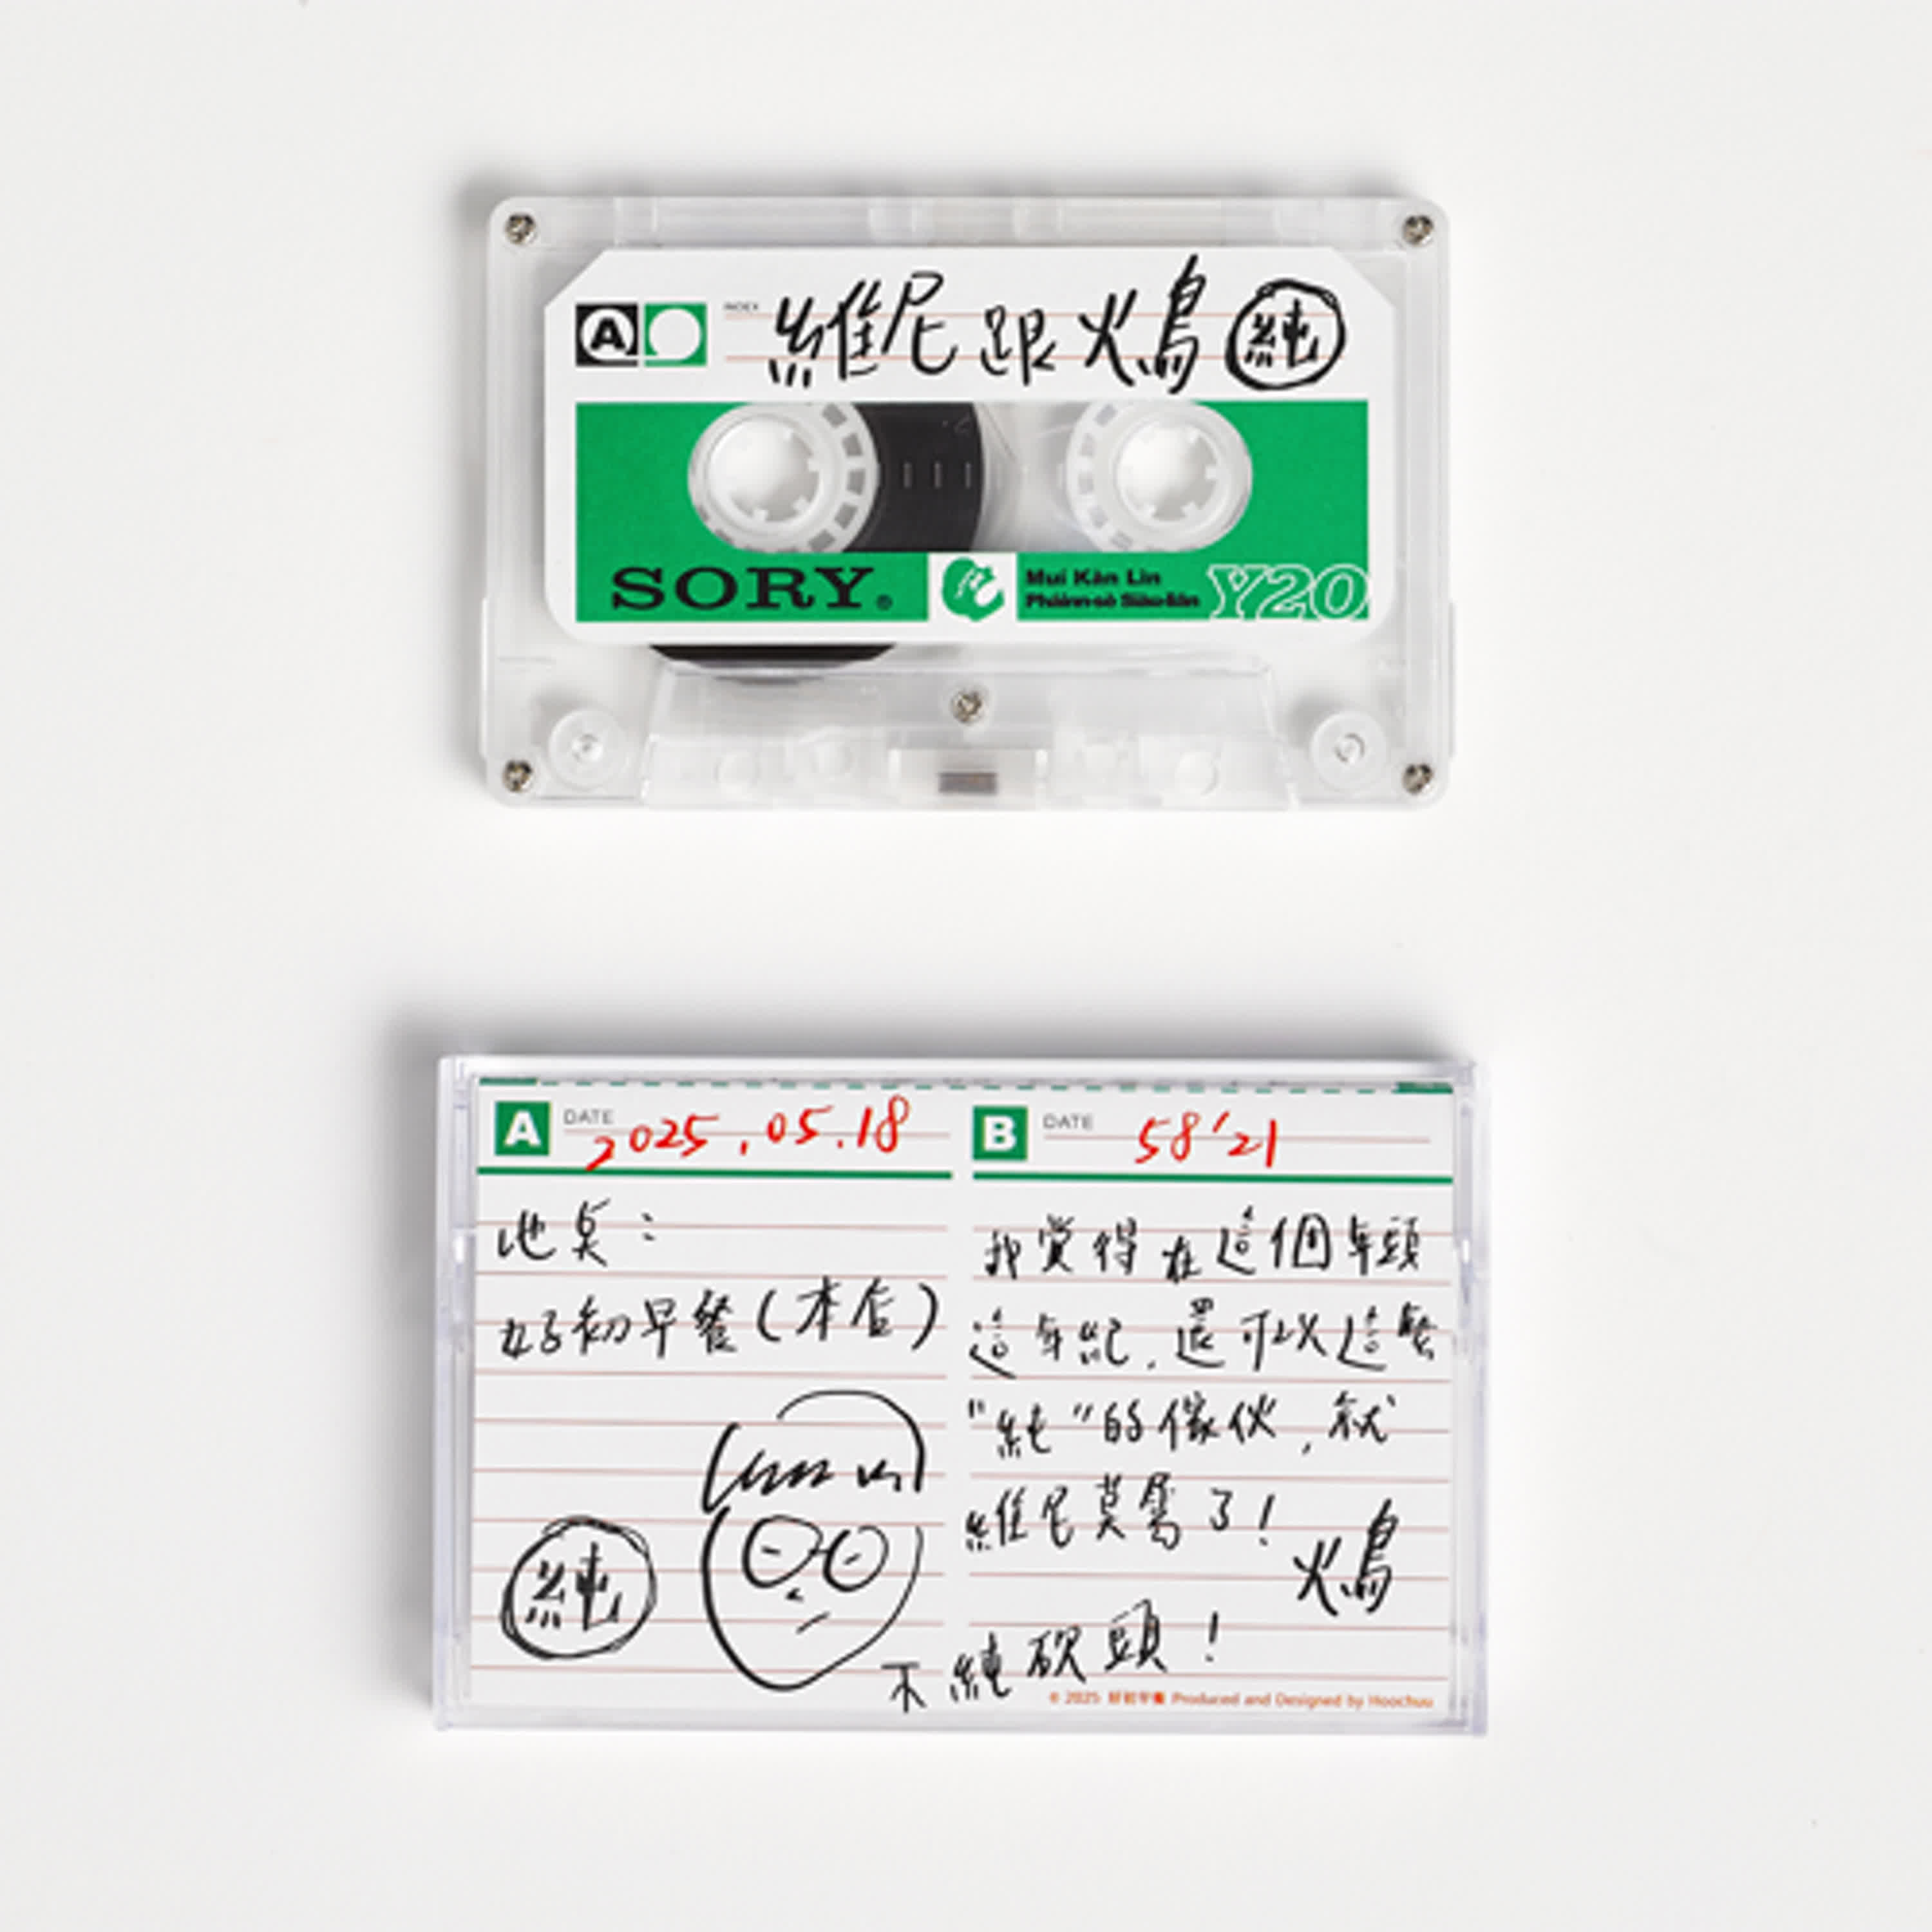 A
INDEX
維尼跟火鳥 純
SORY®
Mui Kàn Lin
Y20
A DATE 2025.05.18
地點:
好初早餐(本店)
純
B DATE 58'21
我覺得在這個年頭
這年紀,還可以這麼
"純"的傢伙,就
維尼莫屬了!
火鳥
不純砍頭!
© 2025 好初早餐 Produced and Designed by Hoochuu